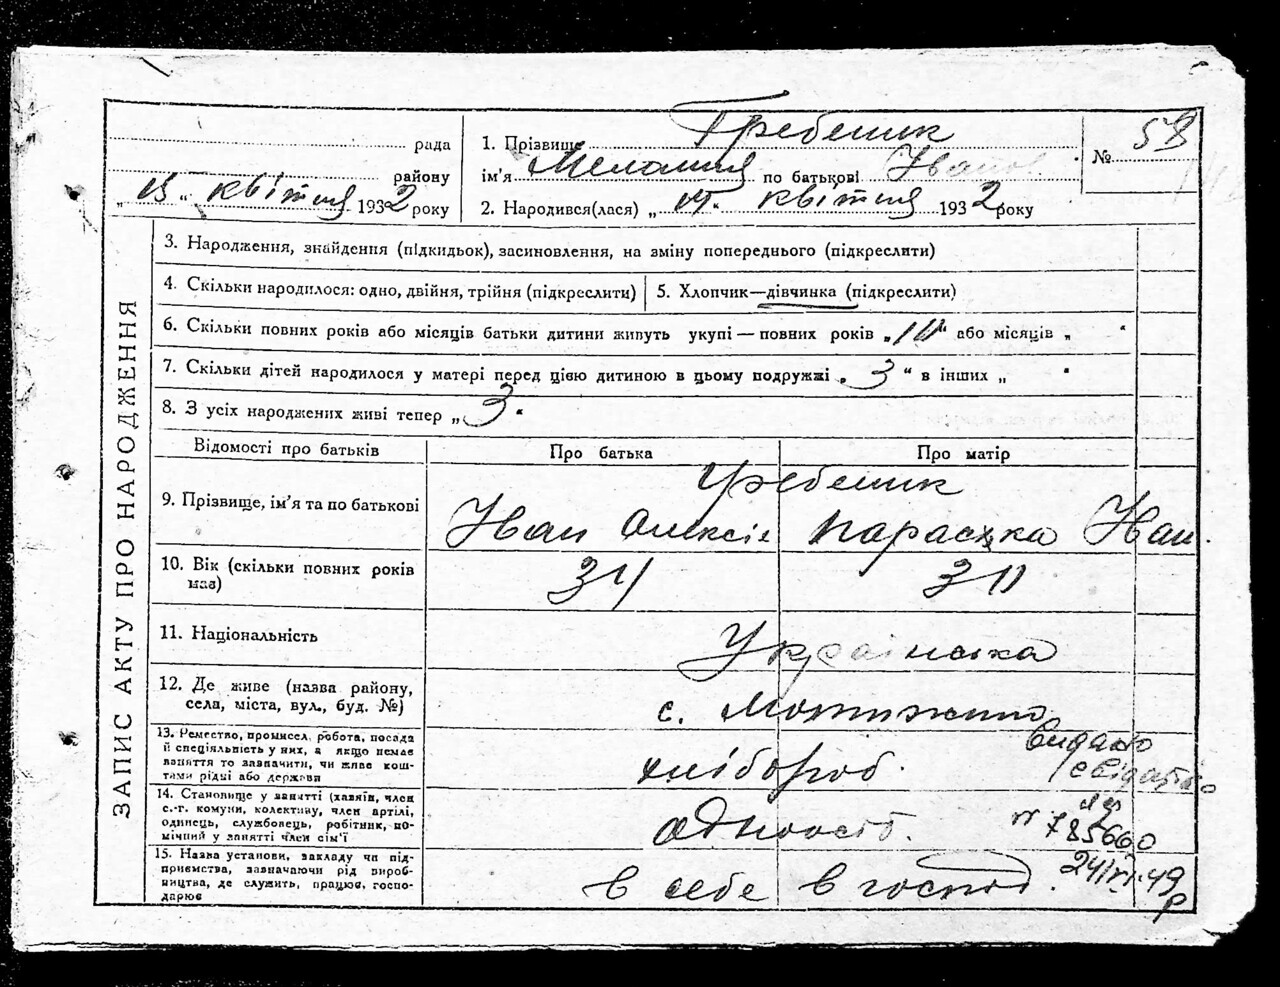 рада
району
„ 15 " квітня 1932 року
1. Прізвище Гребеник
ім'я Мелания по батькові Іванов.
2. Народився(лася) „ 14 " квітня 1932 року
№ 58
ЗАПИС АКТУ ПРО НАРОДЖЕННЯ
3. Народження, знайдення (підкидьок), засиновлення, на зміну попереднього (підкреслити)
4. Скільки народилося: одно, двійня, трійня (підкреслити)
5. Хлопчик—дівчинка (підкреслити)
6. Скільки повних років або місяців батьки дитини живуть укупі — повних років „ 10 " або місяців „ "
7. Скільки дітей народилося у матері перед цією дитиною в цьому подружжі „ 3 " в інших „ "
8. З усіх народжених живі тепер „ 3 "
Відомості про батьків
Про батька
Про матір
9. Прізвище, ім'я та по батькові
Гребеник
Іван Олексів
Параска Іван.
10. Вік (скільки повних років мав)
34
30
11. Національність
Українська
12. Де живе (назва району, села, міста, вул., буд. №)
с. Мотижин
13. Ремество, промисел, робота, посада й спеціяльність у них, а якщо немає заняття то зазначити, чи живе коштами рідні або держави
хлібороб.
14. Становище у занятті (хазяїн, член с.-г. комуни, колективу, член артілі, одинець, службовець, робітник, помічний у занятті член сім'ї
одноосіб.
15. Назва установи, закладу чи підприємства, зазначаючи рід виробництва, де служить, працює, господарює
в себе в господ.
Видано
свідотво
785660
24/VI-49
р